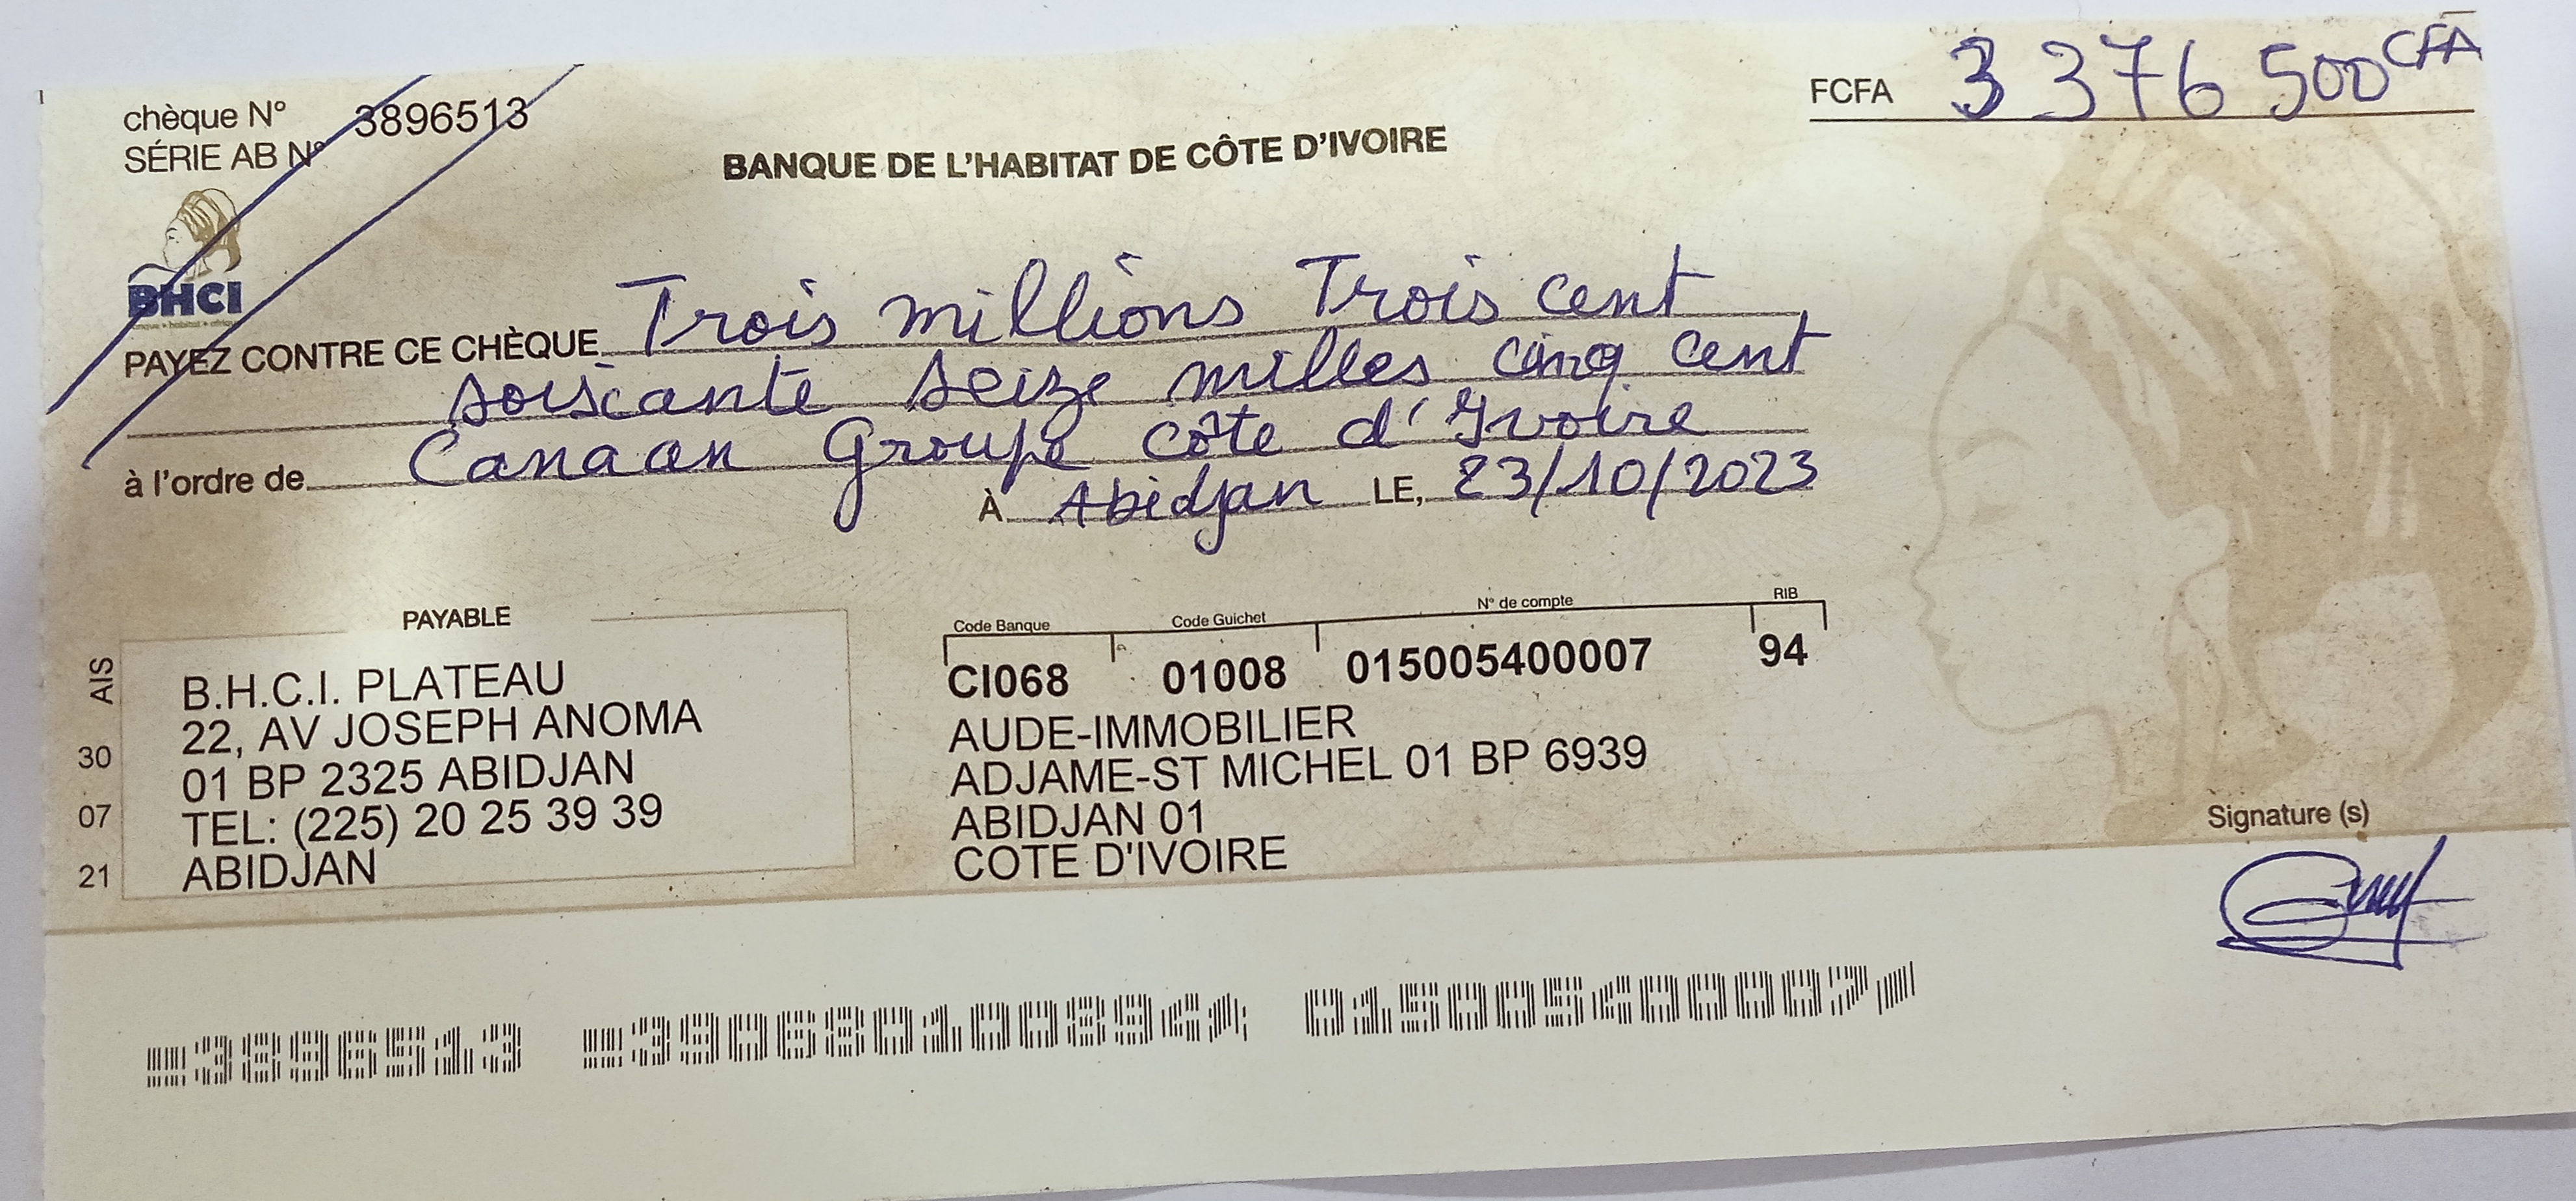 chèque N° 3896513
SÉRIE AB N°
FCFA 3 376 500 CFA
BANQUE DE L'HABITAT DE CÔTE D'IVOIRE
BHCI
PAYEZ CONTRE CE CHÈQUE Trois millions Trois cent
soixante seize milles cinq cent
à l'ordre de Canaan Groupe Côte d'Ivoire
À Abidjan LE, 23/10/2023
PAYABLE
B.H.C.I. PLATEAU
22, AV JOSEPH ANOMA
01 BP 2325 ABIDJAN
TEL: (225) 20 25 39 39
ABIDJAN
AIS
30
07
21
Code Banque Code Guichet N° de compte RIB
CI068 01008 015005400007 94
AUDE-IMMOBILIER
ADJAME-ST MICHEL 01 BP 6939
ABIDJAN 01
COTE D'IVOIRE
Signature (s)
3896513 390680100894 015005400007